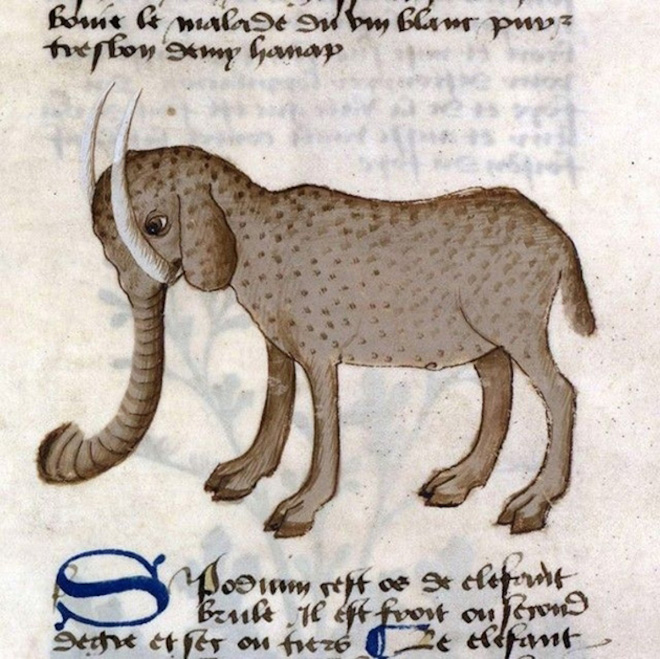 boive le malade du vin blanc pur
tresbon demy hanap
Spodium cest os de elefant
brule Il est froit ou second
degre et sec ou tiers Le elefant